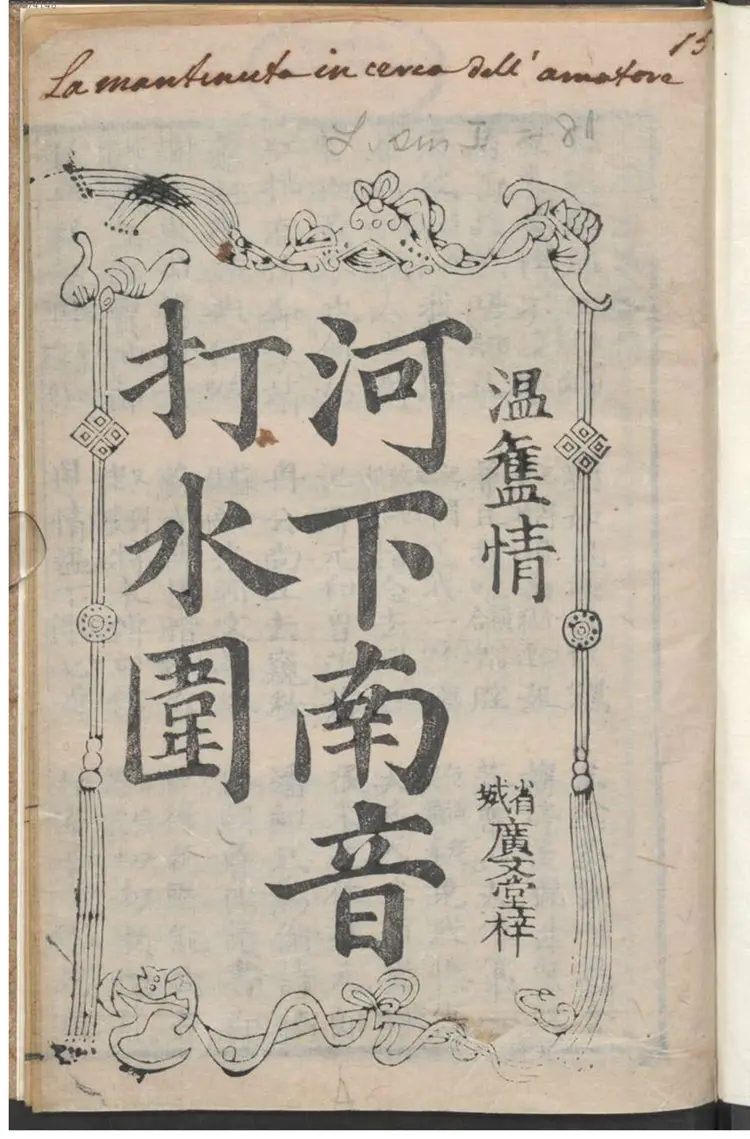 La mantenuta in cerca dell' amatore
温舊情
省城廣文堂梓
河下南音
打水圍